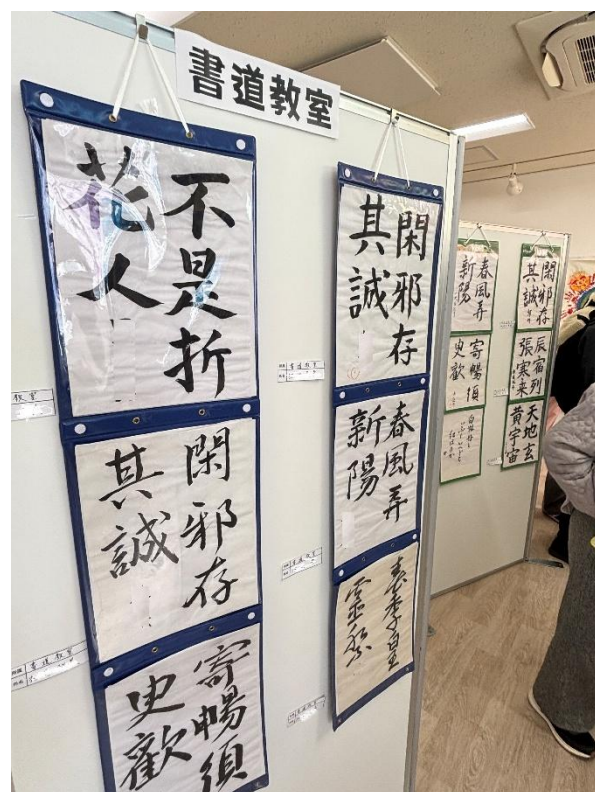 書道教室
不是折
花人
閑邪存
其誠
寄暢須
史歡
閑邪存
其誠
春風弄
新陽
春風弄
新陽
寄暢須
史歡
閑邪存
其誠
辰宿列
張寒来
天地玄
黄宇宙
教室
書道教室
書道教室
書道教室